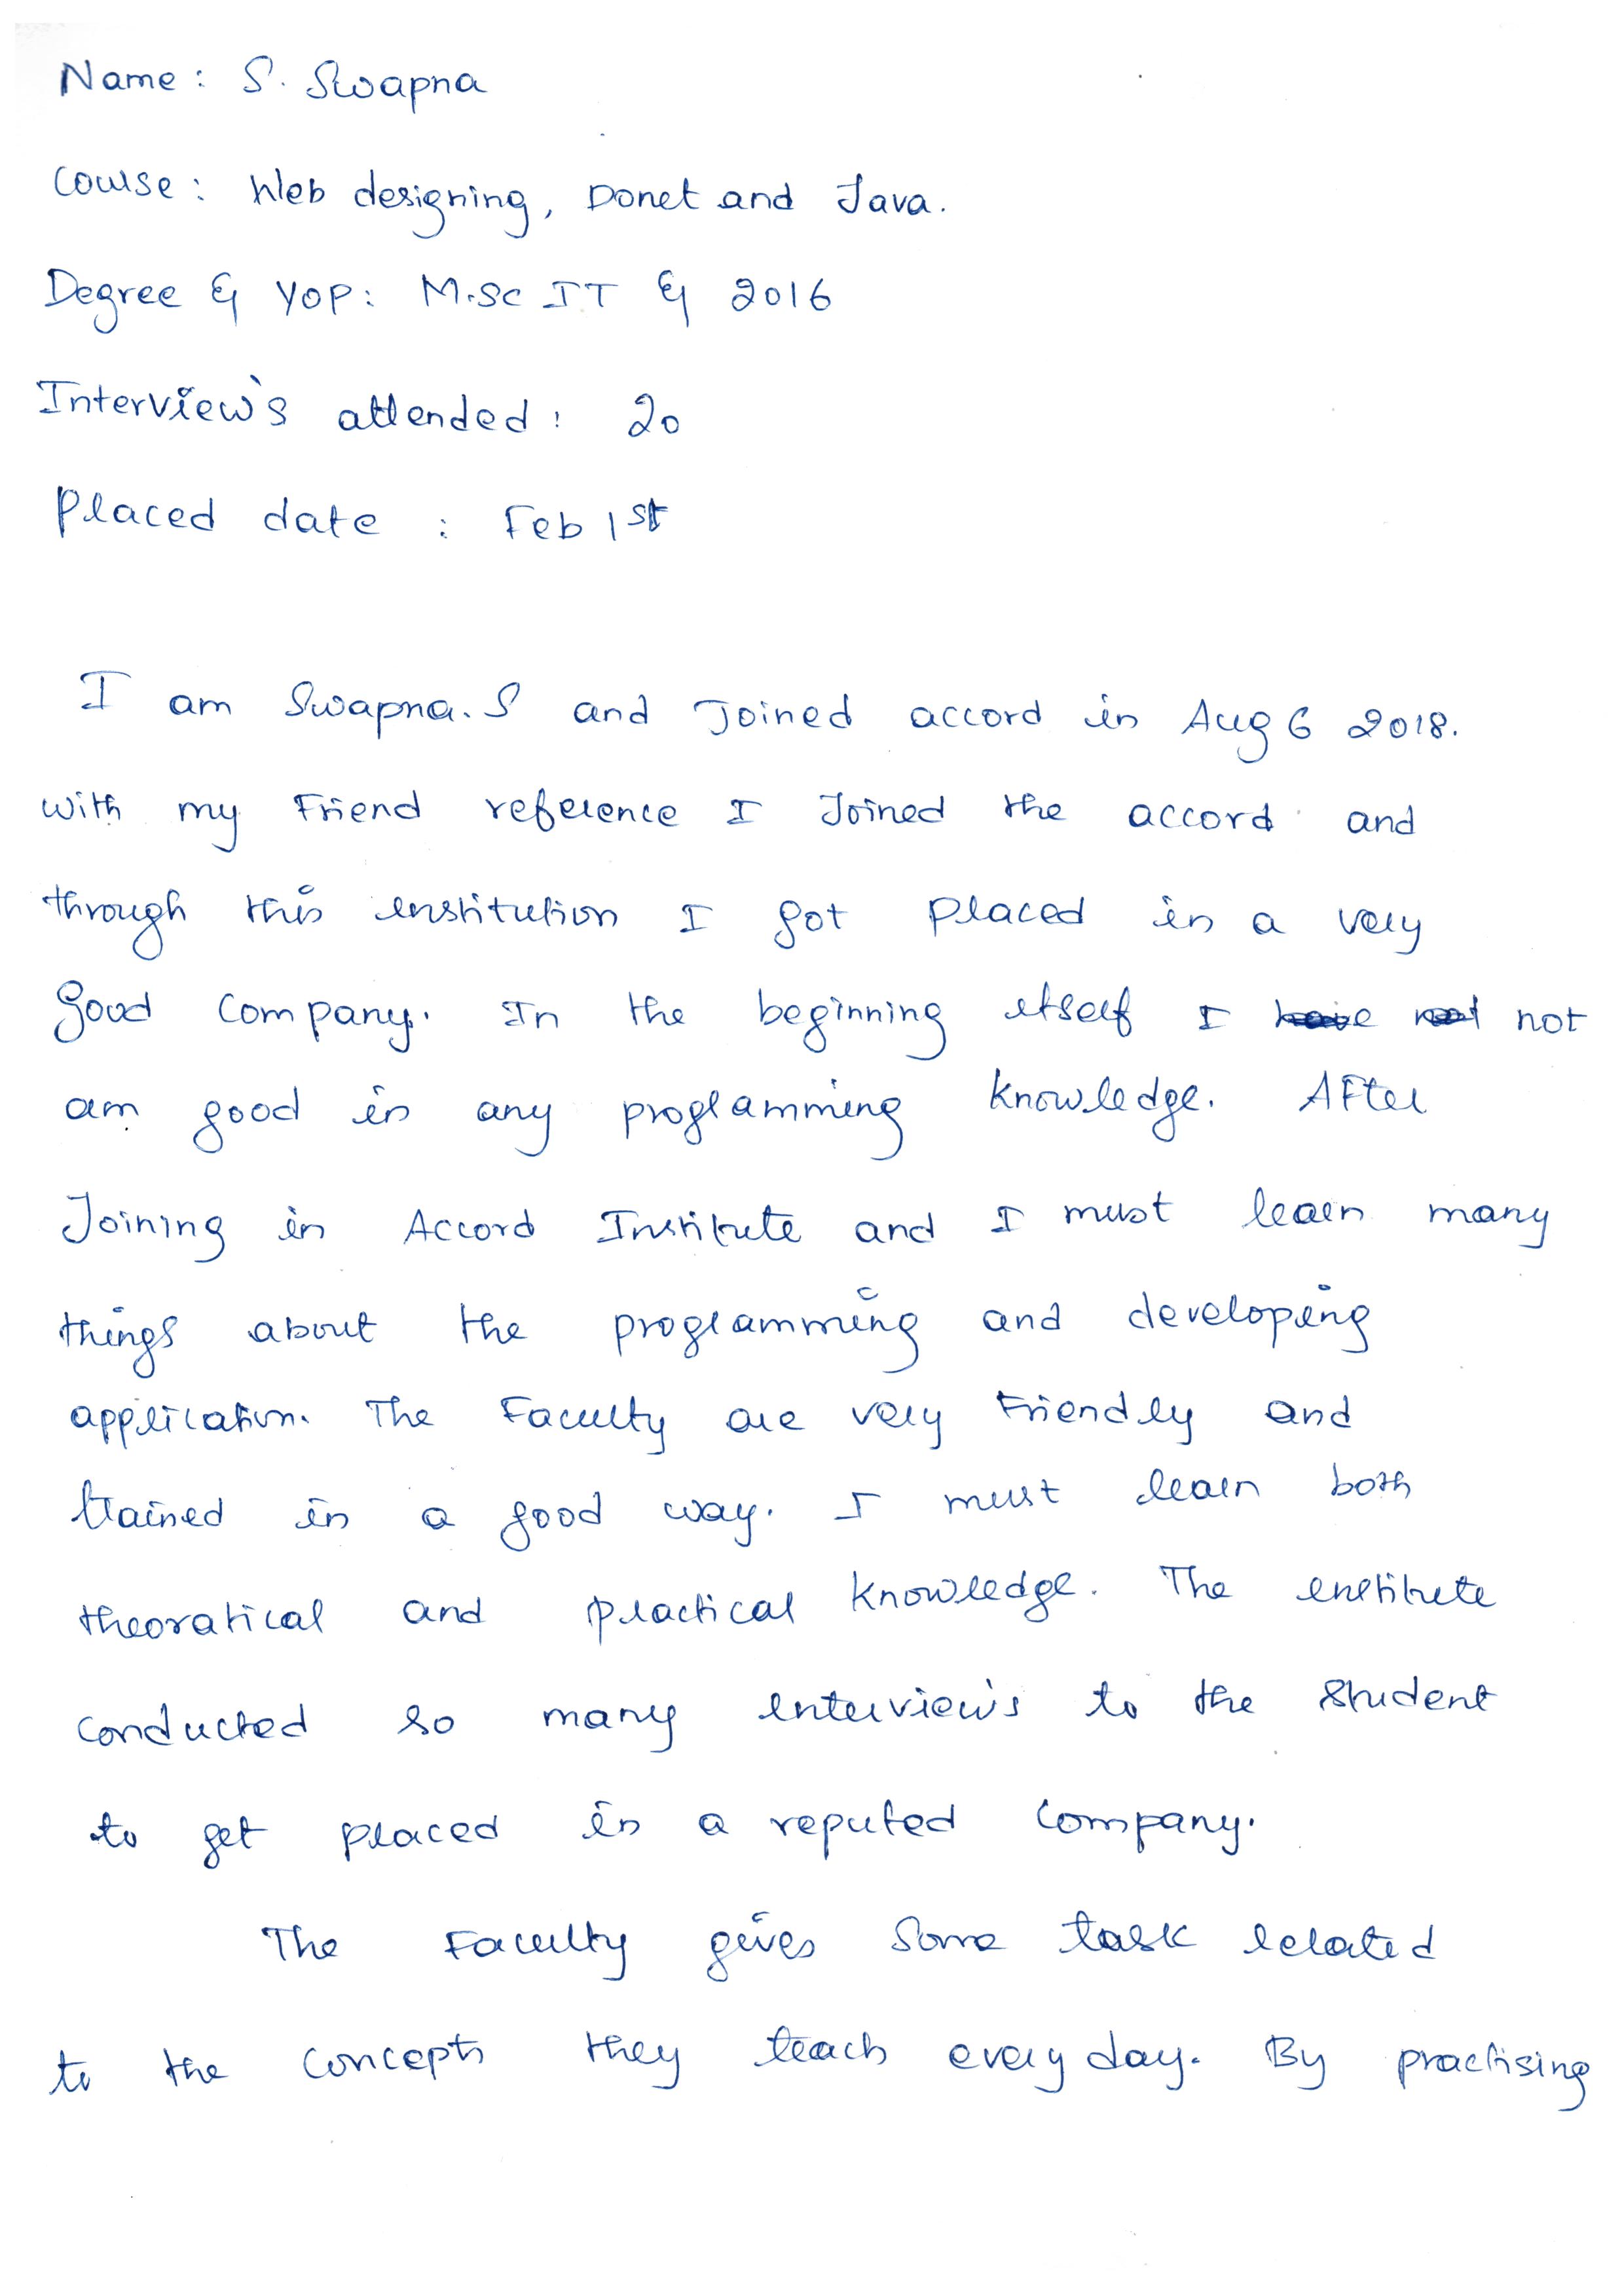 Name : S. Swapna
Course : Web designing, Donet and Java.
Degree & YOP : M.Sc IT & 2016
Interview's attended : 20
Placed date : Feb 1st
I am Swapna.S and Joined accord in Aug 6 2018.
with my Friend reference I Joined the accord and
through this institution I got placed in a very
good company. In the beginning itself I not
am good in any programming knowledge. After
Joining in Accord Institute and I must learn many
things about the programming and developing
application. The Faculty are very Friendly and
trained in a good way. I must learn both
theoratical and practical knowledge. The institute
conducted so many interview's to the student
to get placed in a reputed company.
The Faculty gives Some task related
to the concepts they teach every day. By practising